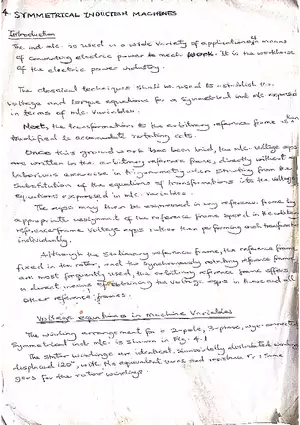 4. SYMMETRICAL INDUCTION MACHINES
Introduction
The ind m/c. is used in a wide variety of applications as means
of converting electric power to meet Work. It is the workhorse
of the electric power industry.
The classical techniques shall be used to establish the
voltage and torque equations for a symmetrical ind m/c expressed
in terms of m/c variables.
Next, the transformations to the arbitrary reference frame
modified to accommodate rotating ccts.
Once this ground work has been laid, the m/c voltage eqns
are written in the arbitrary reference frame, directly without a
laborious exercise in trigonometry when starting from the
substitution of the equations of transformations into the voltage
equations expressed in m/c variables.
The eqns may then be expressed in any reference frame by
appropriate assignment of the reference frame speed in the arbitrary
reference frame voltage eqns rather than performing each transformation
individually.
Although the stationary reference frame, the reference frame
fixed in the rotor, and the synchronously rotating reference frame
are most frequently used, the arbitrary reference frame offers
a direct means of obtaining the voltage eqns in these and all
other reference frames.
Voltage equations in machine Variables
The winding arrangement for a 2-pole, 3-phase, wye-connected
symmetrical ind m/c. is shown in Fig. 4.1
The stator windings are identical, sinusoidally distributed windings
displaced 120°, with Ns equivalent turns and resistance rs. Same
goes for the rotor windings.